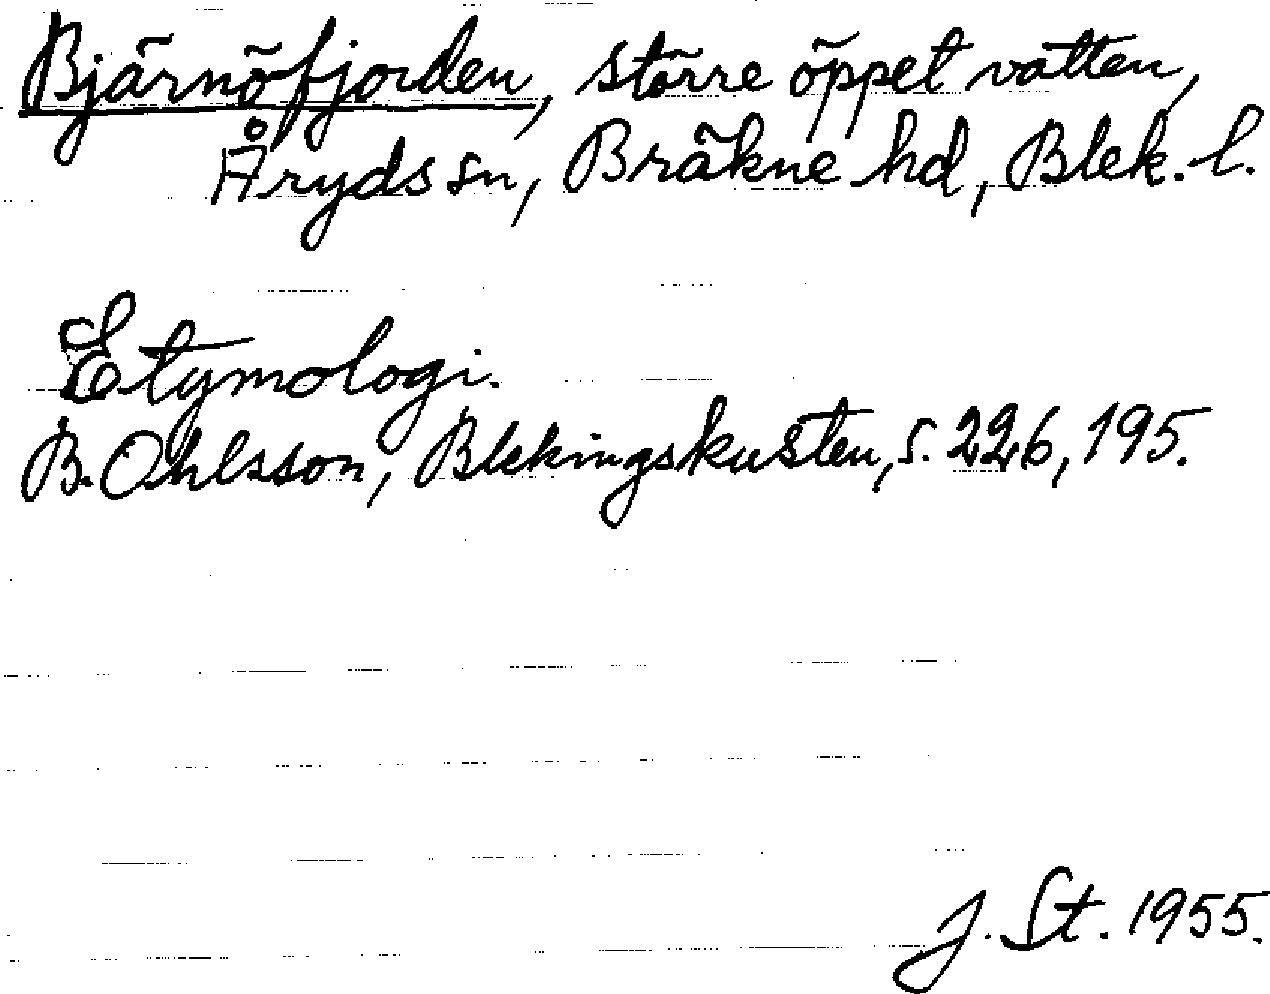 Bjärnöfjorden, större öppet vatten,
Åryds sn, Bräkne hd, Blek. l.
Etymologi.
B. Ohlsson, Blekingskusten, s. 226, 195.
J. St. 1955.